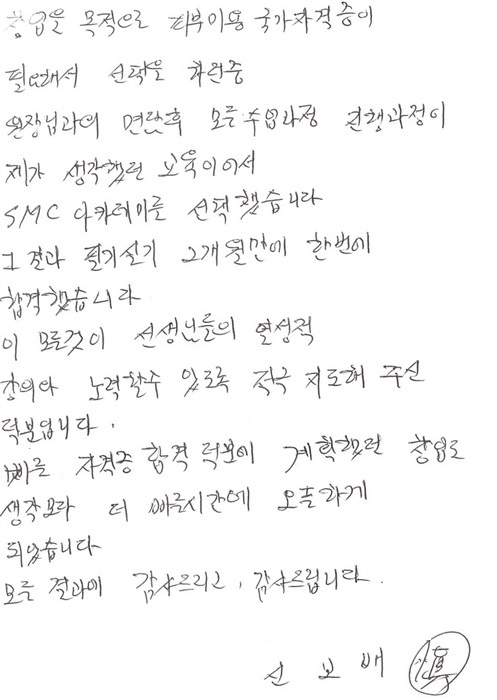 창업을 목적으로 피부미용 국가자격증이
필요해서 선택을 하던중
원장님과의 면담후 모든수업과정 진행과정이
제가 생각했던 교육이어서
SMC 아카데미를 선택했습니다
그 결과 필기실기 2개월만에 한번에
합격했습니다
이 모든것이 선생님들의 열성적
강의와 노력할수 있도록 적극 지도해 주신
덕분입니다.
빠른 자격증 합격 덕분에 계획했던 창업도
생각보다 더 빠른시간에 오픈하게
되었습니다
모든 결과에 감사드리고, 감사드립니다.
신 보 배